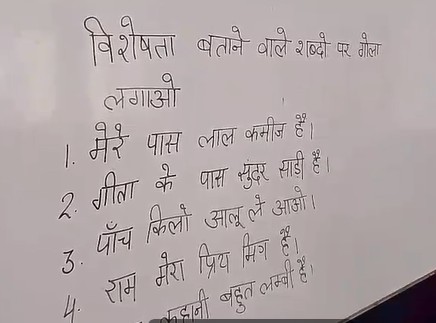 विशेषता बताने वाले शब्दो पर गोला
लगाओ
1. मेरे पास लाल कमीज है।
2. गीता के पास सुंदर साड़ी है।
3. पाँच किलो आलू ले आओ।
4. राम मेरा प्रिय मित्र है।
कहानी बहुत लम्बी है।